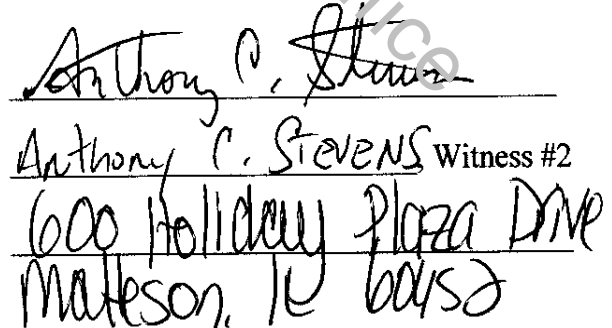 Anthony C. Stevens
Anthony C. STEVENS Witness #2
600 Holiday Plaza Drive
Matteson, IL 60452